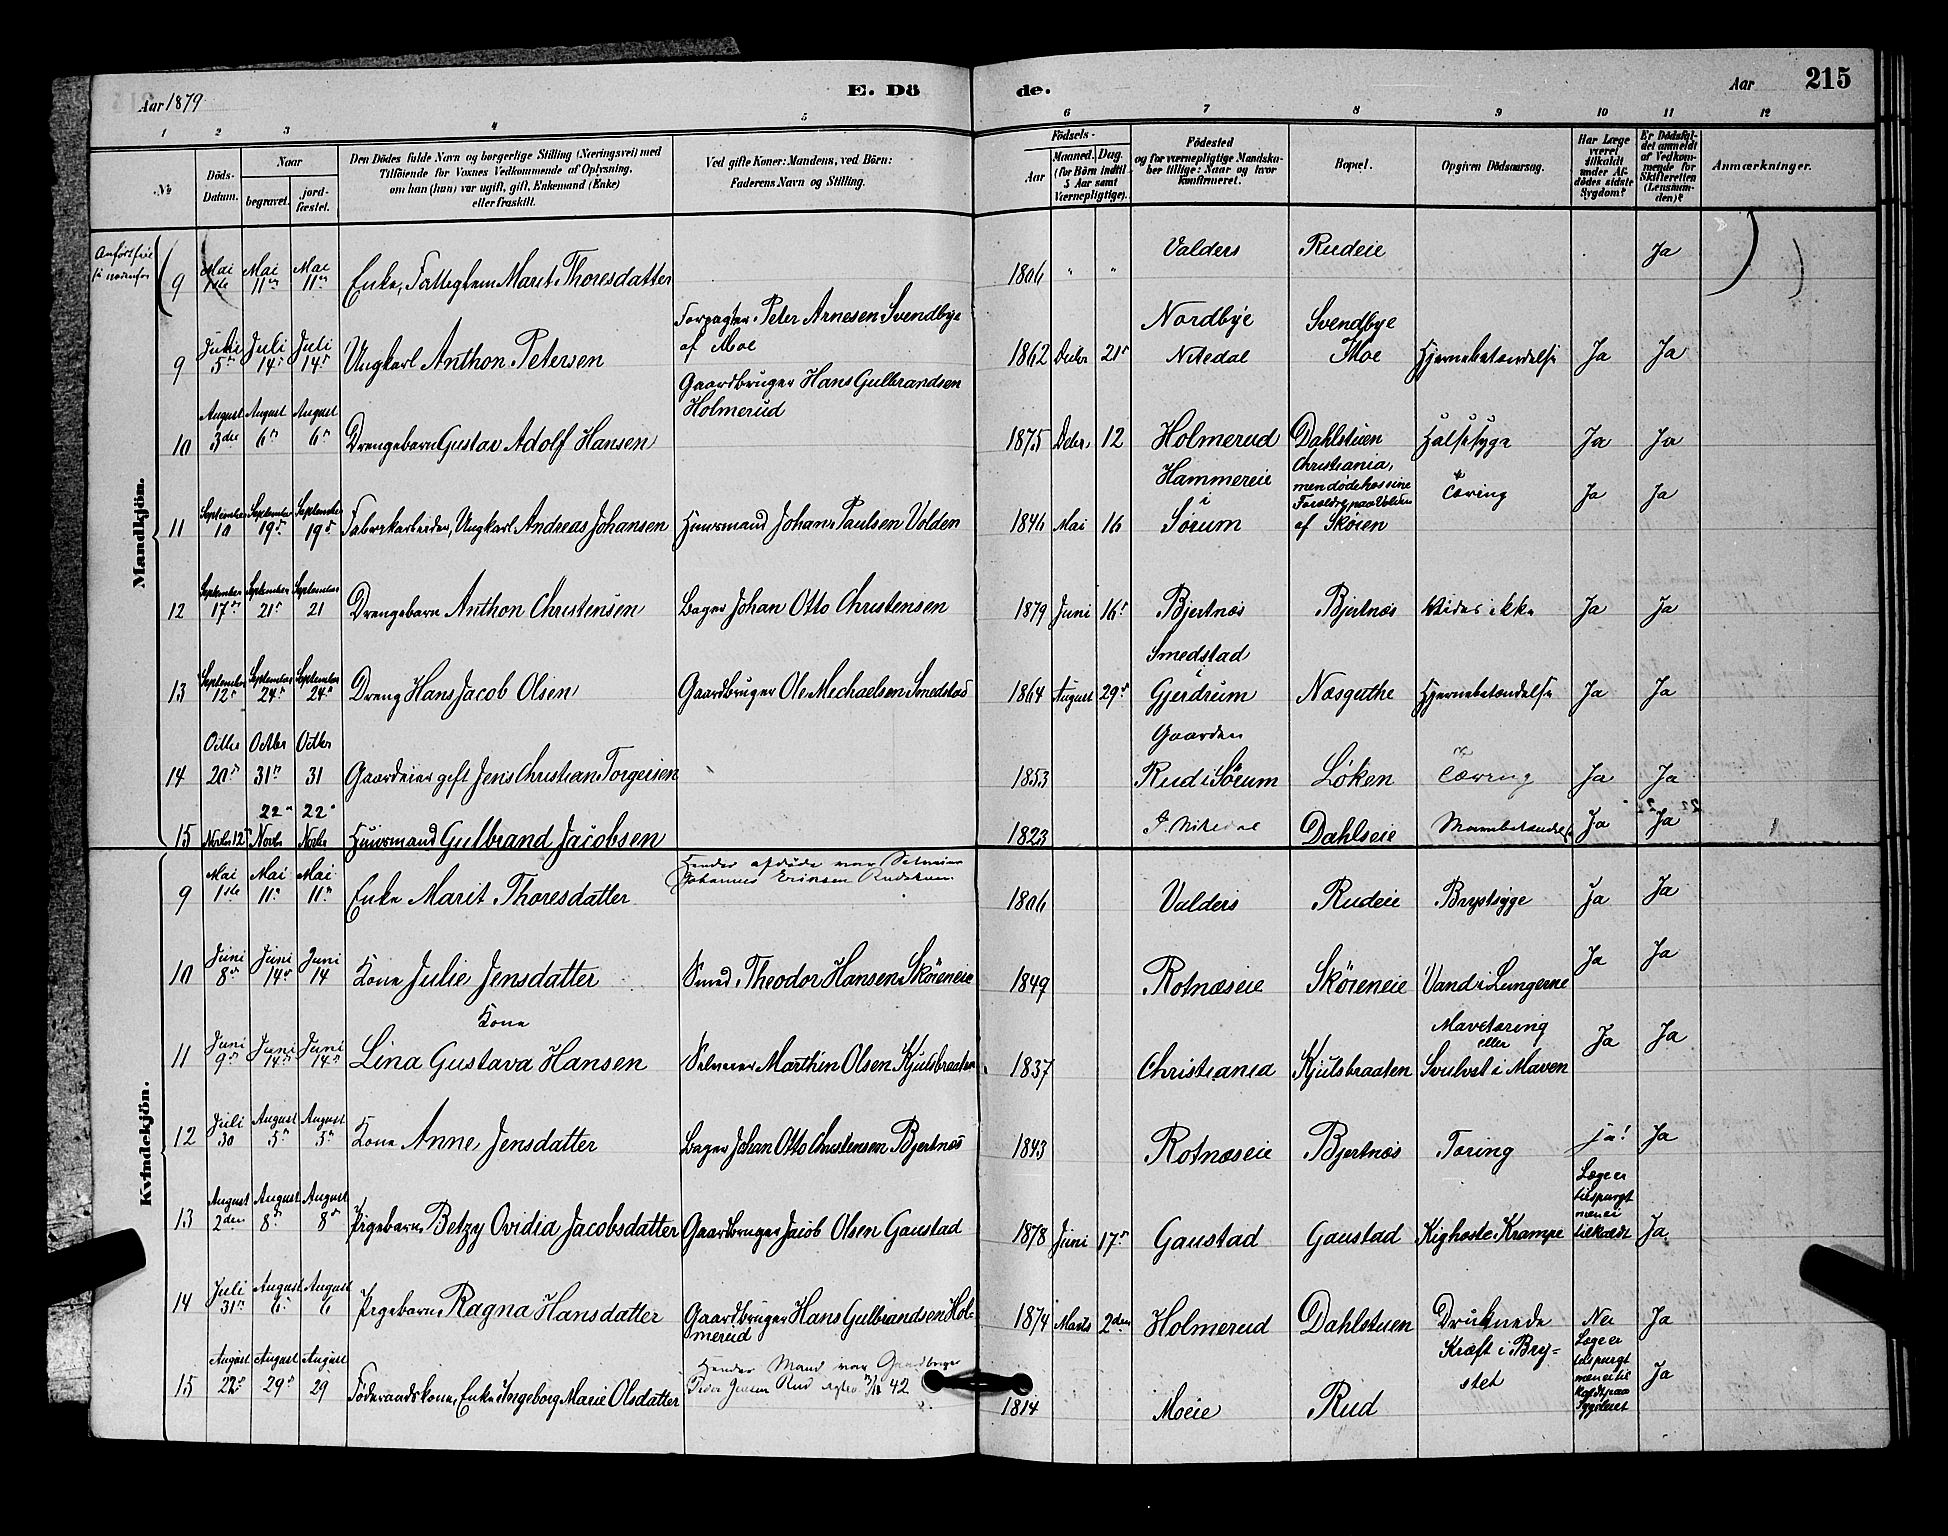 Aar 1879
E. Dö
de.
Aar
215
1 2 3 4 5 6 7 8 9 10 11 12
No
Döds-Datum.
Naar
begravet.
jord-fæstet.
Den Dödes fulde Navn og borgerlige Stilling (Næringsvei) med
Tilföiende for Voxnes Vedkommende af Oplysning,
om han (hun) var ugift, gift, Enkemand (Enke)
eller fraskilt.
Ved gifte Koner: Mandens, ved Börn:
Faderens Navn og Stilling.
Födsels-
Aar
Maaned. Dag.
(for Börn indtil
5 Aar samt
Værnepligtige).
Födested
og for værnepligtige Mandska-
ber tillige: Naar og hvor
konfirmeret.
Bopæl.
Opgiven Dödsaarsag.
Har Læge
været
tilkaldt
under Af-
dödes sidste
Sygdom?
Er Dödsfal-
det anmeldt
af Vedkom-
mende for
Skifteretten
(Lensman-
den)?
Anmærkninger.
Mandkjön.
9 Mai 1ste Mai 11te Mai 11te Enke, Fattiglem Marit Thoresdatter 1806 " " Valders Rudeie Ja
9 5te Juli 14de Juli 14de Ungkarl Anthon Petersen Forpagter Peter Arnesen Svendbye af Moe 1862 Decbr 21de Nordbye Nitedal Svendbye Moe Hjernebetændelse Ja Ja
10 August 3die August 6te August 6te Drengebarn Gustav Adolf Hansen Gaardbruger Hans Gulbrandsen Holmerud 1875 Debr. 12 Holmerud Dahlstuen Halssyge Ja Ja
11 September 10 September 19de September 19de Fabrikarbeider, Ungkarl Andreas Johansen Huusmand Johan Paulsen Volden 1846 Mai 16 Hammereie i Sørum Christiania, men døde hos sine Forældre paa Volden af Skøien Tæring Ja Ja
12 September 17de September 21de September 21 Drengebarn Anthon Christensen Bager Johan Otto Christensen 1879 Juni 16de Bjertnæs Bjertnæs Vides ikke Ja Ja
13 September 12te September 24de September 24de Dreng Hans Jacob Olsen Gaardbruger Ole Mechaelsen Smedstad 1864 August 29de Smedstad Gjerdrum Næsguthe Hjernebetændelse Ja Ja
14 Octbr 20de Octbr 31te Octbr 31 Gaardeier gift Jens Christian Torgersen 1853 Gaarden Rud i Sørum Løken Tæring Ja Ja
15 Novbr 12te 22de Novbr 22de Novbr Huusmand Gulbrand Jacobsen 1823 Nitedal Dahlseie Ja Ja
Kvindekjön.
9 Mai 1ste Mai 11te Mai 11te Enke Marit Thoresdatter Hendes afdøde var Selveier Johannes Eriksen 1806 Valders Rudeie Brystsyge Ja Ja
10 Juni 8de Juni 14de Juni 14 Kone Julie Jensdatter Smed Theodor Hansen Skøieneie 1849 Rotnæseie Skøieneie Vand i Lungerne Ja Ja
11 Juni 9de Juni 14de Juni 14de Kone Lina Gustava Hansen Selveier Marthin Olsen Kjulsbraaten 1837 Christiania Kjulsbraaten Mavetæring eller Svulst i Maven Ja Ja
12 Juli 30 August 5te August 5te Kone Anne Jensdatter Bager Johan Otto Christensen Bjertnæs 1843 Rotnæseie Bjertnæs Tæring ja! Ja
13 August 2den August 8de August 8de Pigebarn Betzy Ovidia Jacobsdatter Gaardbruger Jacob Olsen Gaustad 1878 Juni 17de Gaustad Gaustad Kighoste Krampe Læge er tilspurgt men ei tilkaldt Ja
14 Juli 31te August 6te August 6 Pigebarn Ragna Hansdatter Gaardbruger Hans Gulbrandsen Holmerud 1874 Marts 2den Holmerud Dahlstuen Druknede Nei Ja
15 August 22de August 29de August 29 Føderaadskone, Enke Ingeborg Marie Olsdatter Hendes Mand var Gaardbruger Peder Jensen Rud 42 1814 Moeie Rud Kræft i Brystet Læge er tilspurgt men ei tilkaldt paa Sygeleiet Ja